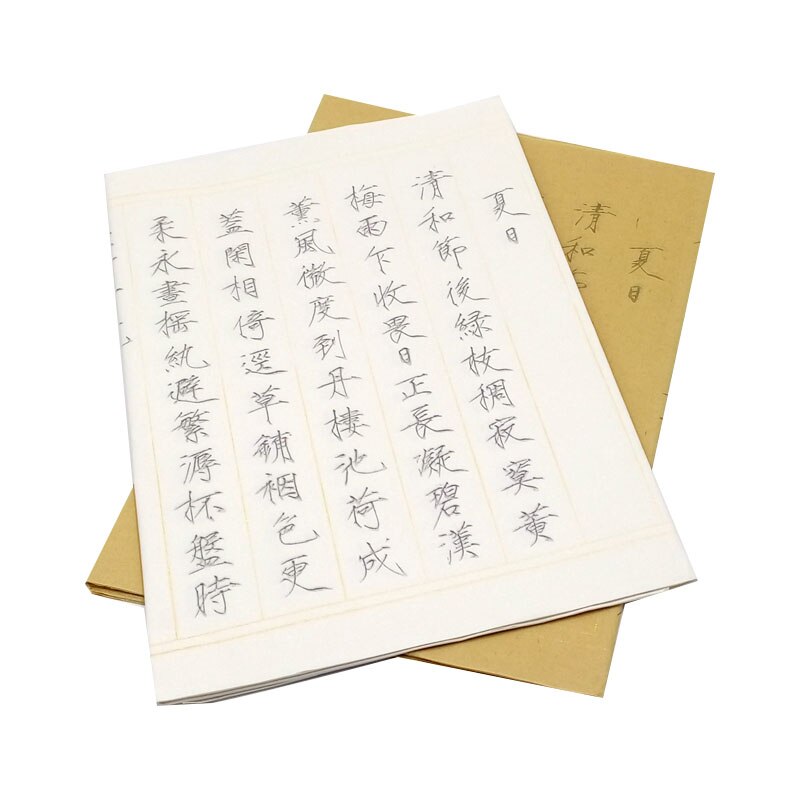 夏日
清和節後綠枝稠寂寞黄
梅雨乍收畏日正長凝碧漢
薰風微度到丹樓池荷成
蓋閑相倚逕草鋪裀色更
柔永晝搖紈避繁溽杯盤時
夏日
清和節